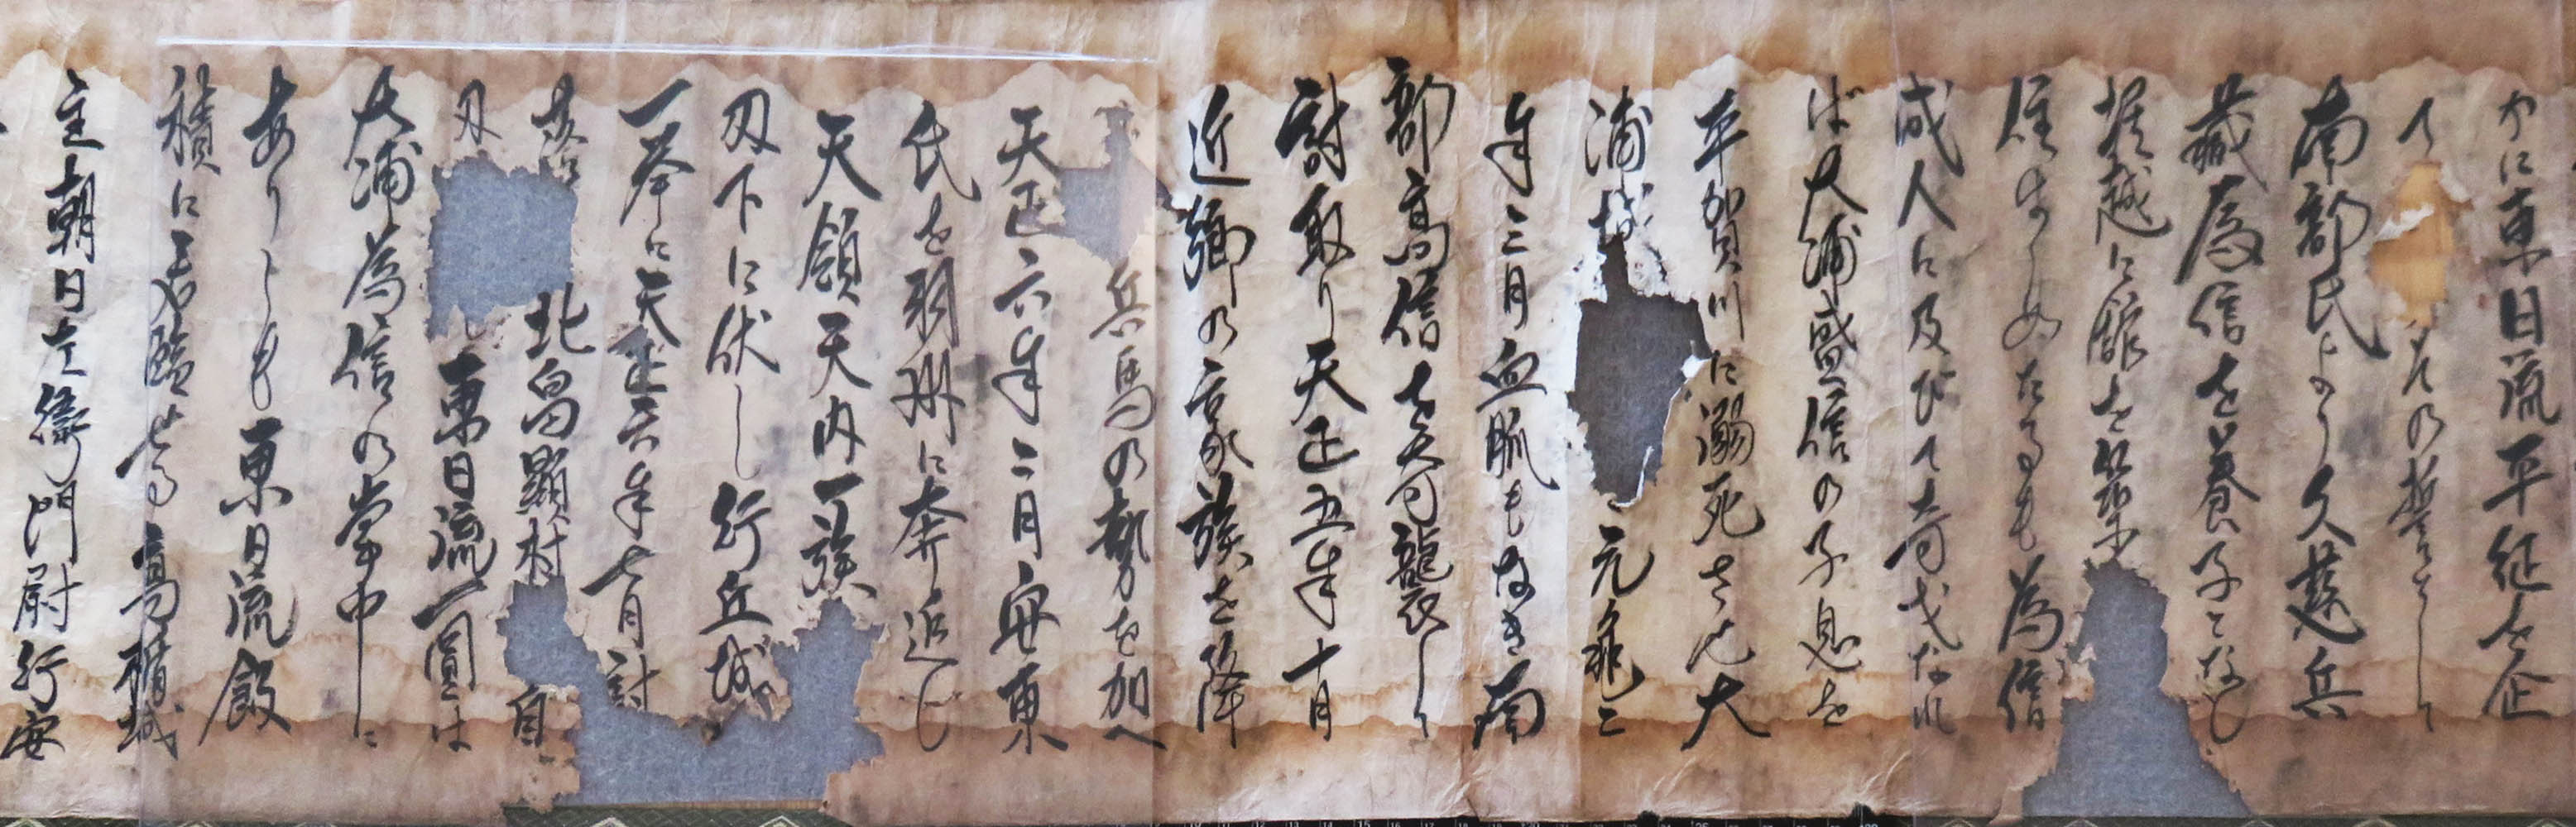 かに東日流平征を企
て その誓として
南部氏より久慈兵
蔵為信を養子となし
堀越に館を築
住はしめたるも為信
成人に及びて奇戈なれ
ば大浦盛信の子息を
平賀川に溺死させ大
浦城 元亀二
年三月血脈もなき南
部高信を奇襲して
討取り天正五年十月
近郷の豪族を降
兵馬の勢を加へ
天正六年二月安東
氏を羽州に奔近し
天領天内一族
刄下に伏し行丘城
一挙に天正六年七月討
落 北畠顕村 自
刄 し東日流一圓は
大浦為信の掌中に
ありしも東日流飯
積に君臨せる高楯城
主朝日左衛門尉行安